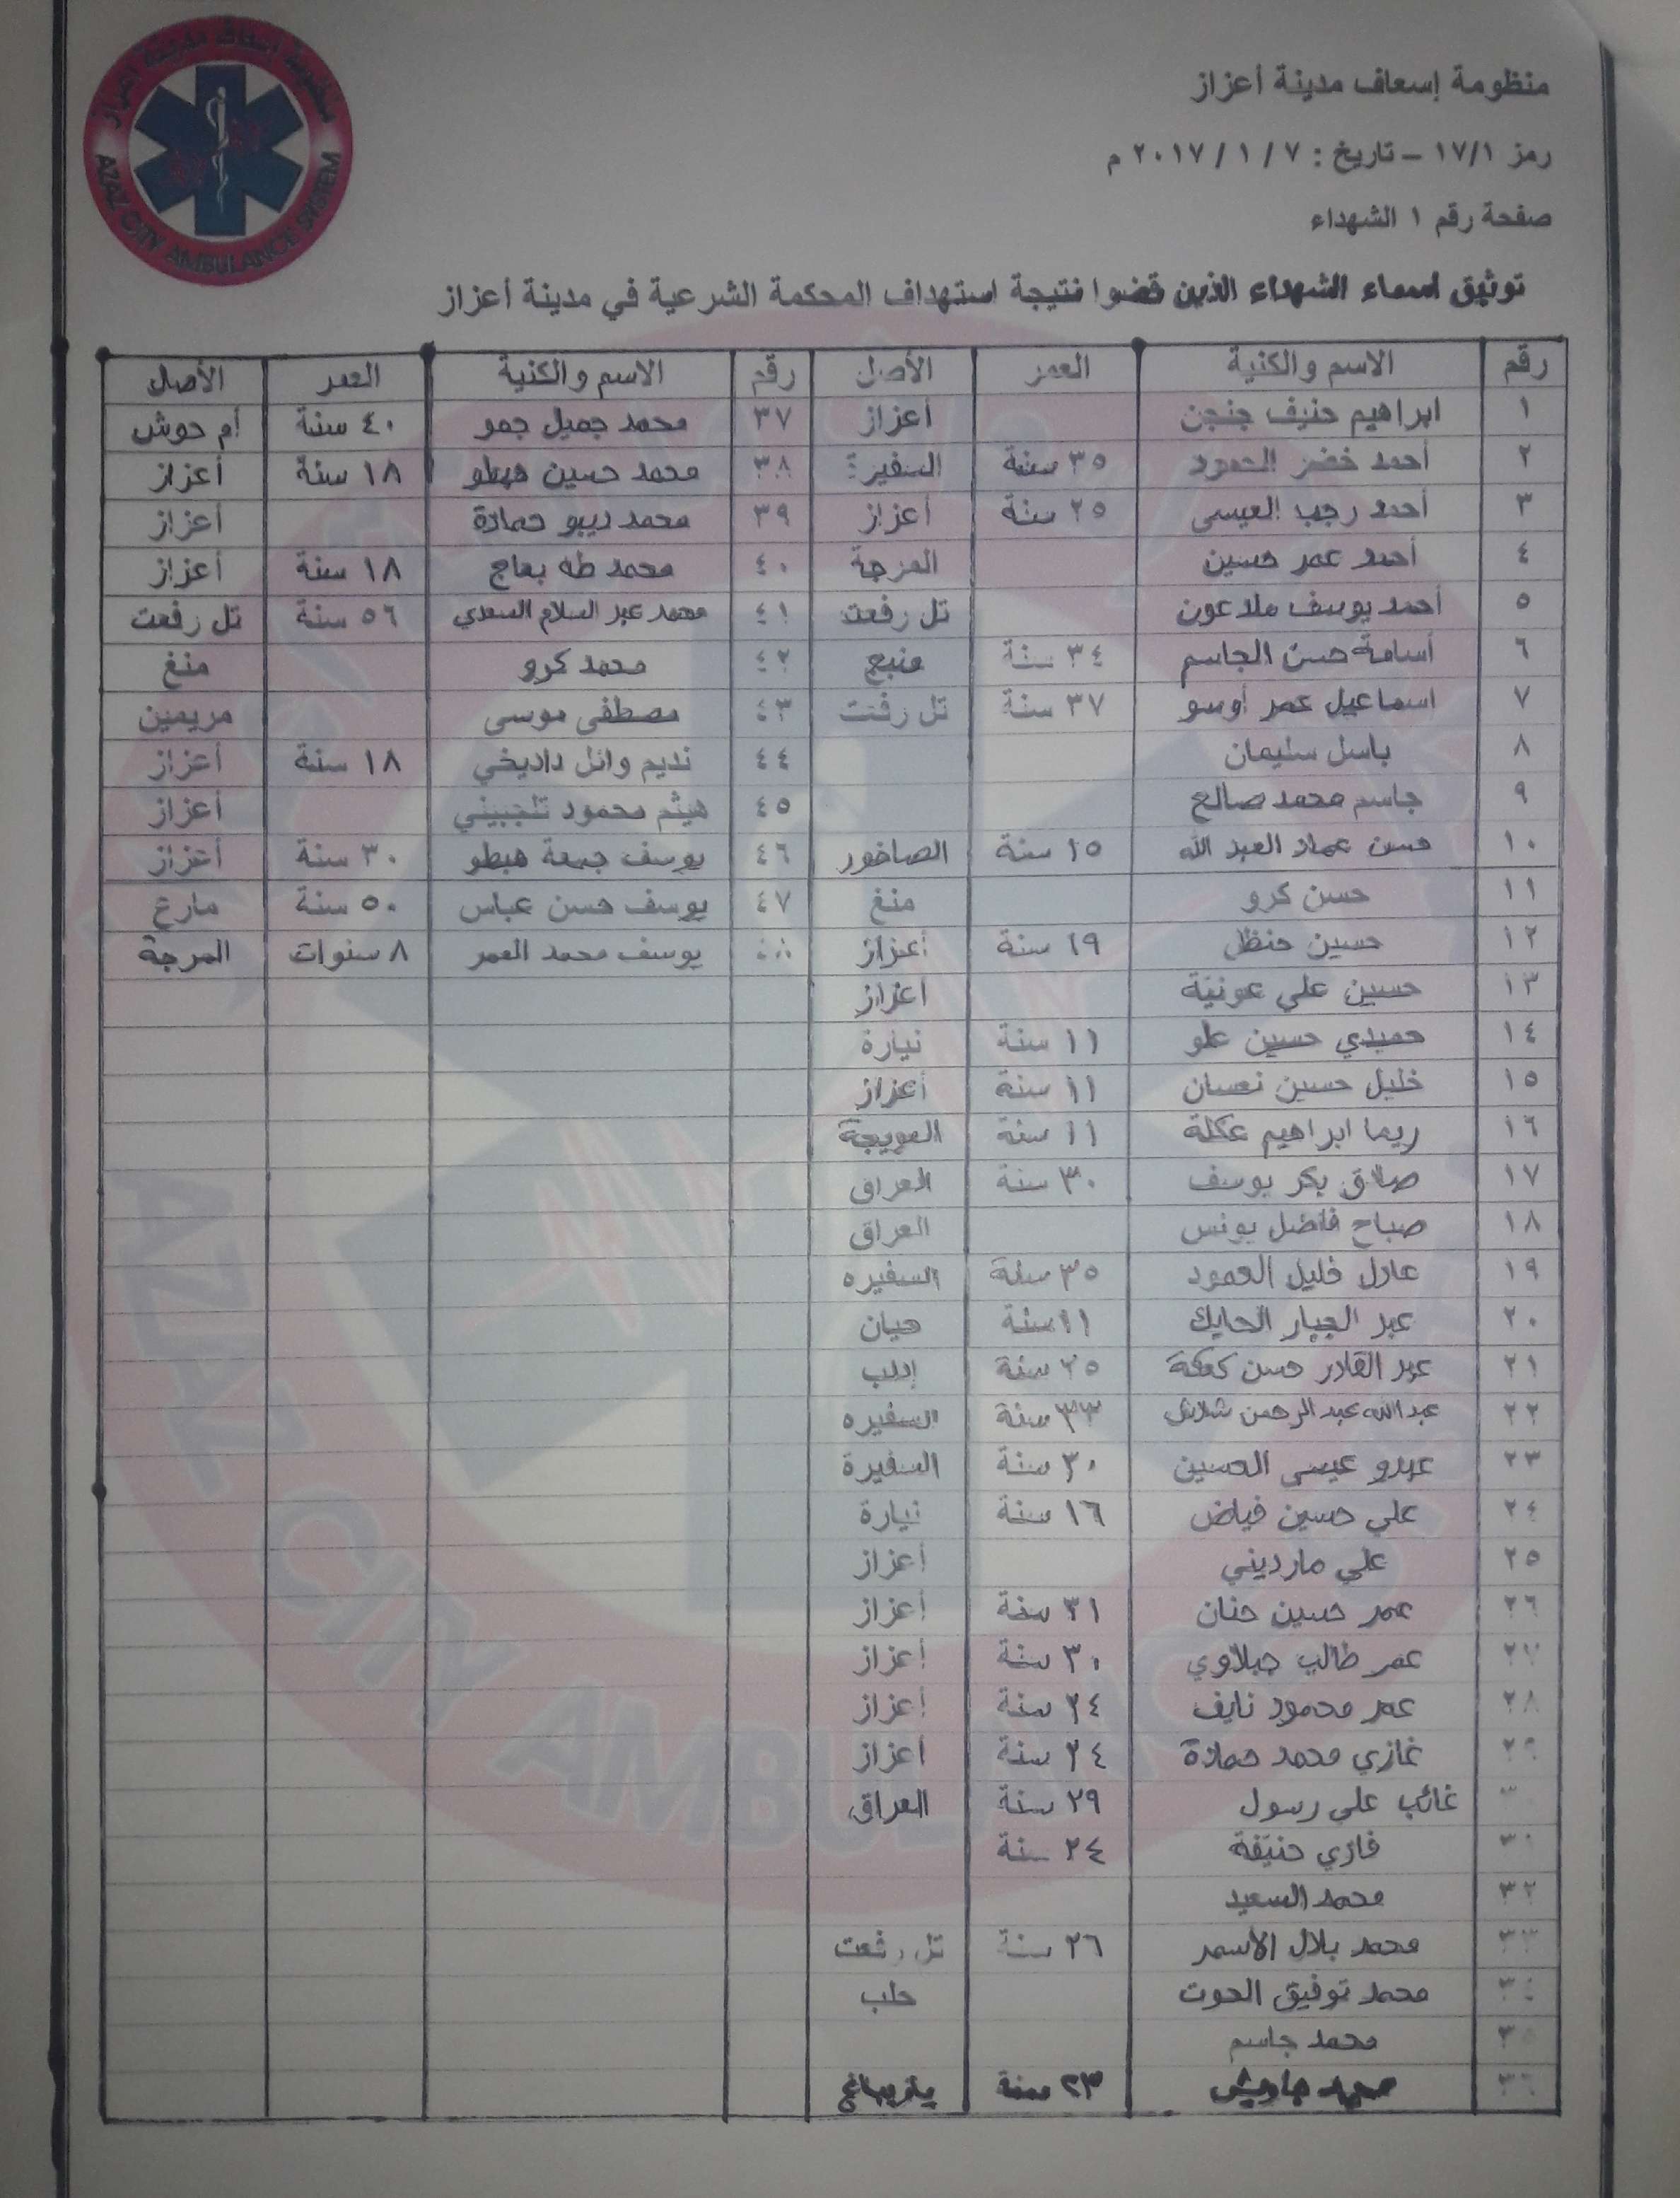 منظومة إسعاف مدينة أعزاز
AZAZ CITY AMBULANCE SYSTEM
منظومة إسعاف مدينة أعزاز
رمز ١٧/١ – تاريخ : ٧ / ١ / ٢٠١٧ م
صفحة رقم ١ الشهداء
توثيق اسماء الشهداء الذين قضوا نتيجة استهداف المحكمة الشرعية في مدينة أعزاز
رقم الاسم والكنية العمر الأصل رقم الاسم والكنية العمر الأصل
١ ابراهيم حنيف جنجن أعزاز ٣٧ محمد جميل جمو ٤٠ سنة أم حوش
٢ أحمد خضر الحمود ٣٥ سنة السفيرة ٣٨ محمد حسين هبطو ١٨ سنة أعزاز
٣ أحمد رجب العيسى ٢٥ سنة أعزاز ٣٩ محمد ديبو حمادة أعزاز
٤ أحمد عمر حسين المرجة ٤٠ محمد طه بعاج ١٨ سنة أعزاز
٥ أحمد يوسف ملاعون تل رفعت ٤١ محمد عبد السلام السعدي ٥٦ سنة تل رفعت
٦ أسامة حسن الجاسم ٣٤ سنة منبج ٤٢ محمد كرو منغ
٧ اسماعيل عمر أوسو ٣٧ سنة تل رفعت ٤٣ مصطفى موسى مريمين
٨ باسل سليمان ٤٤ نديم وائل داديخي ١٨ سنة أعزاز
٩ جاسم محمد صالح ٤٥ هيثم محمود تلجبيني أعزاز
١٠ حسن عماد العبد الله ١٥ سنة الصاخور ٤٦ يوسف جمعة هبطو ٣٠ سنة أعزاز
١١ حسن كرو منغ ٤٧ يوسف حسن عباس ٥٠ سنة مارع
١٢ حسين حنظل ١٩ سنة أعزاز ٤٨ يوسف محمد العمر ٨ سنوات المرجة
١٣ حسين علي عونية أعزاز
١٤ حميدي حسين علو ١١ سنة نيارة
١٥ خليل حسين نعسان ١١ سنة أعزاز
١٦ ريما ابراهيم عكلة ١١ سنة العويجة
١٧ صلاق بكر يوسف ٣٠ سنة العراق
١٨ صباح فاضل يونس العراق
١٩ عادل خليل الحمود ٣٥ سنة السفيره
٢٠ عبد الجبار الحايك ١١ سنة حيان
٢١ عبد القادر حسن كعكة ٢٥ سنة إدلب
٢٢ عبدالله عبد الرحمن شلاش ٣٣ سنة السفيره
٢٣ عبدو عيسى الحسين ٣٠ سنة السفيرة
٢٤ علي حسين فياض ١٦ سنة نيارة
٢٥ علي مارديني أعزاز
٢٦ عمر حسين حنان ٣١ سنة أعزاز
٢٧ عمر طالب جبلاوي ٣٠ سنة أعزاز
٢٨ عمر محمود نايف ٢٤ سنة أعزاز
٢٩ غازي محمد حمادة ٣٤ سنة أعزاز
غائب علي رسول ٢٩ سنة العراق
فازي حنيفة ٢٤ سنة
٣٢ محمد السعيد
٣٣ محمد بلال الأسمر ٢٦ سنة تل رفعت
٣٤ محمد توفيق الحوت حلب
٣٥ محمد جاسم
٣٦ محمد جاويش ٢٣ سنة